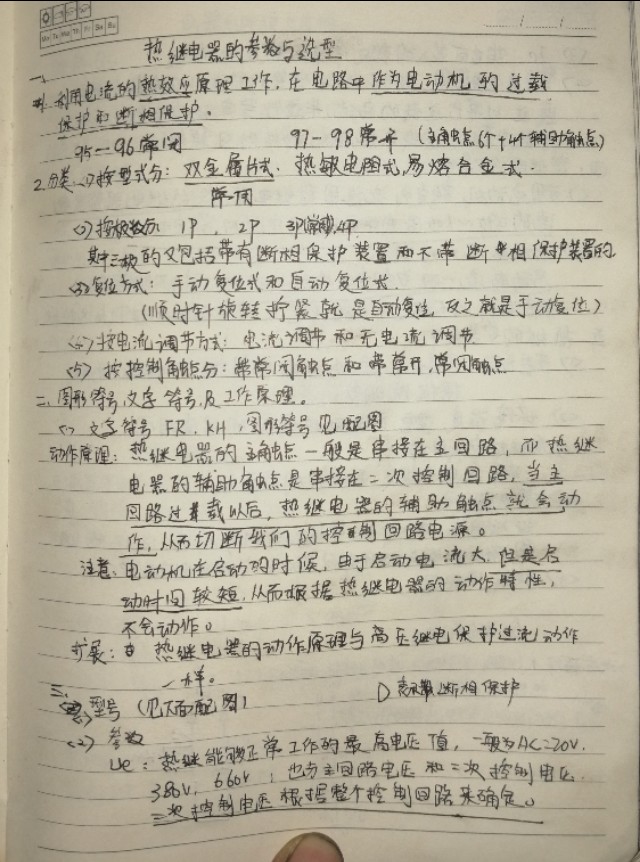 热继电器的参数与选型
一、
1. 利用电流的热效应原理工作，在电路中作为电动机的过载
保护和断相保护。
95—96常闭 97—98常开 (主触点6个+4个辅助触点)
2.分类 (1)按型式分：双金属片式、热敏电阻式、易熔合金式.
常用
(2)按极数分 1P、2P 3P(常用)、4P
其中三极的又包括带有断相保护装置而不带断相保护装置的
(3)复位方式：手动复位式和自动复位式.
(顺时针旋转拧紧就是自动复位，反之就是手动复位)
(4)按电流调节方式：电流调节和无电流调节
(5)按控制触点分：带常闭触点和带常开,常闭触点
二、图形符号,文字符号,及工作原理。
(1) 文字符号 FR、KH、图形符号见配图
动作原理：热继电器的主触点一般是串接在主回路，而热继
电器的辅助触点是串接在二次控制回路，当主
回路过载以后，热继电器的辅助触点就会动
作，从而切断我们的控制回路电源。
注意、电动机在启动的时候，由于启动电流大，但是启
动时间较短，从而根据热继电器的动作特性，
不会动作。
扩展：热继电器的动作原理与高压继电保护过流动作
一样。
三、
型号 (见下面配图) D表示带断相保护
(2) 参数
Ue：热继能够正常工作的最高电压值，一般为AC220V、
380V、660V；也分主回路电压和二次控制电压.
二次控制电压根据整个控制回路来确定。